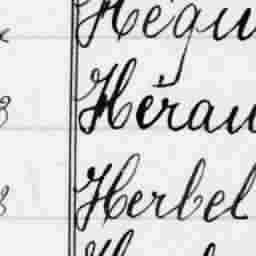 Hégu
Hérau
Herbel